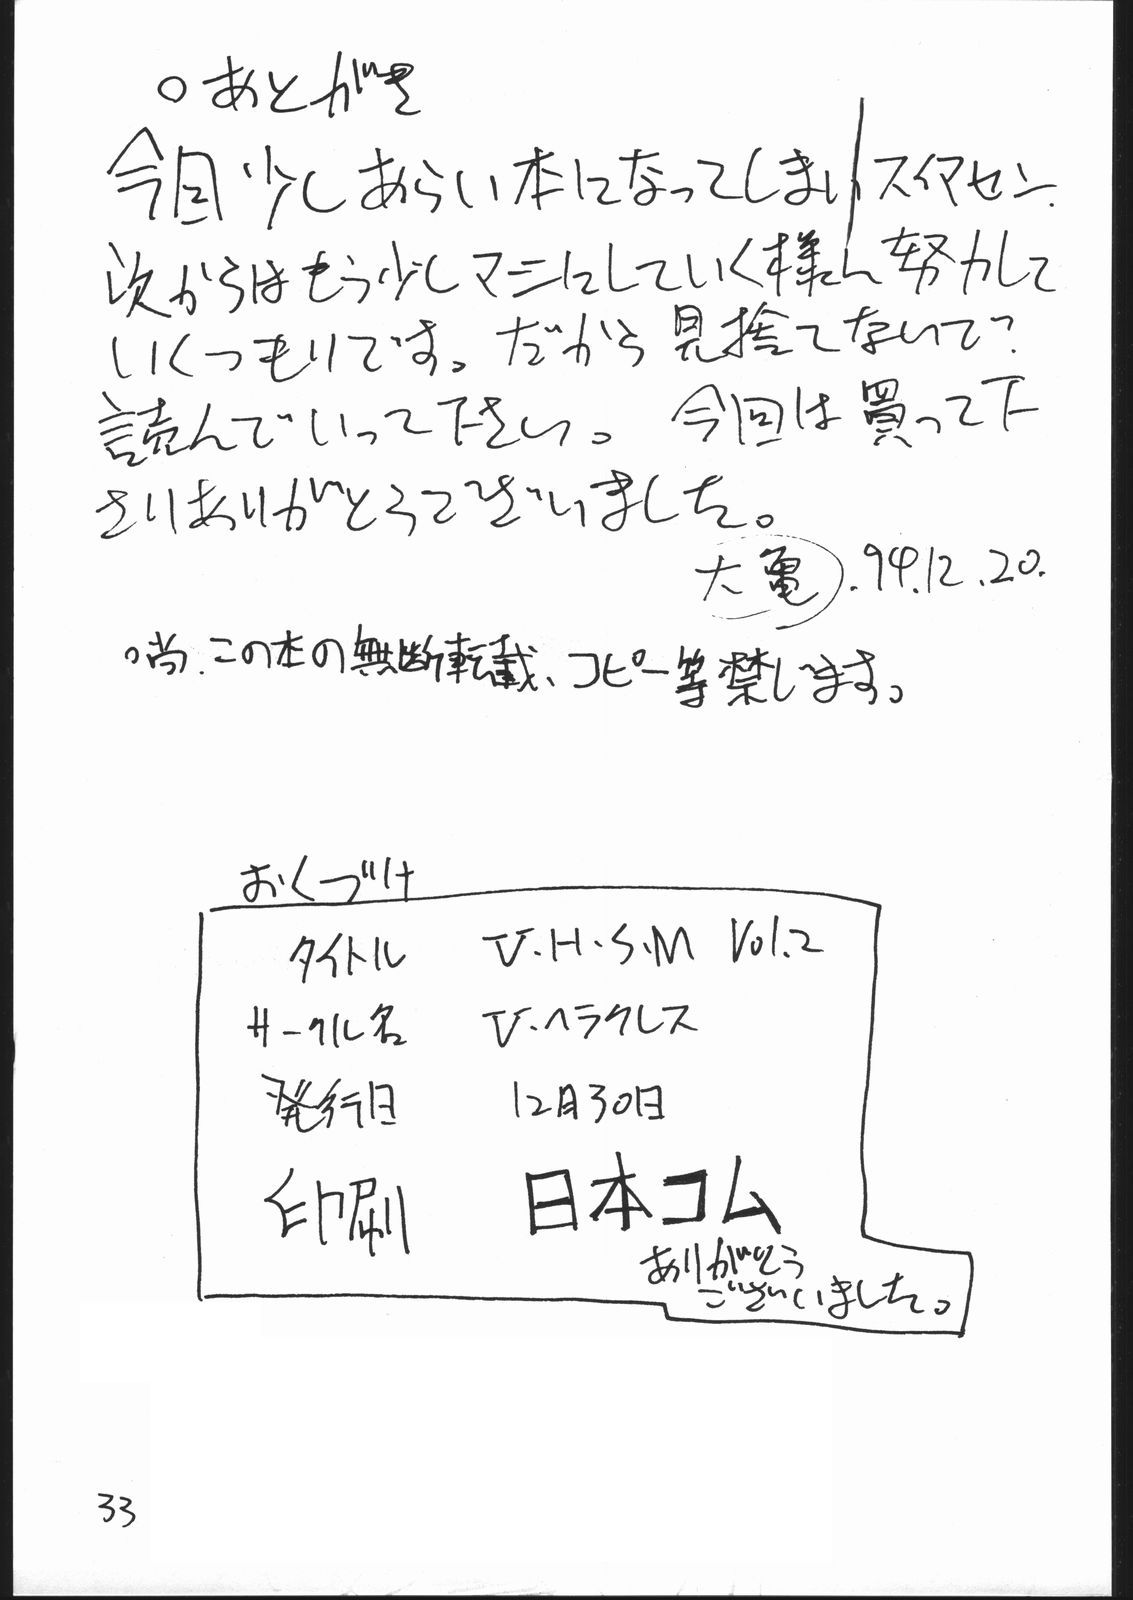 ○あとがき
今回少しあらい本になってしまいスイマセン.
次からはもう少しマシにしていく様に努力して
いくつもりです。だから見捨てないで?
読んでいって下さい。今回は買って下
さりありがとうございました。
大亀.94.12.20.
○尚.この本の無断転載、コピー等禁じます。
おくづけ
タイトル V.H.S.M Vol.2
サークル名 V.ヘラクレス
発行日 12月30日
印刷 日本コム
ありがとう
ございました。
33